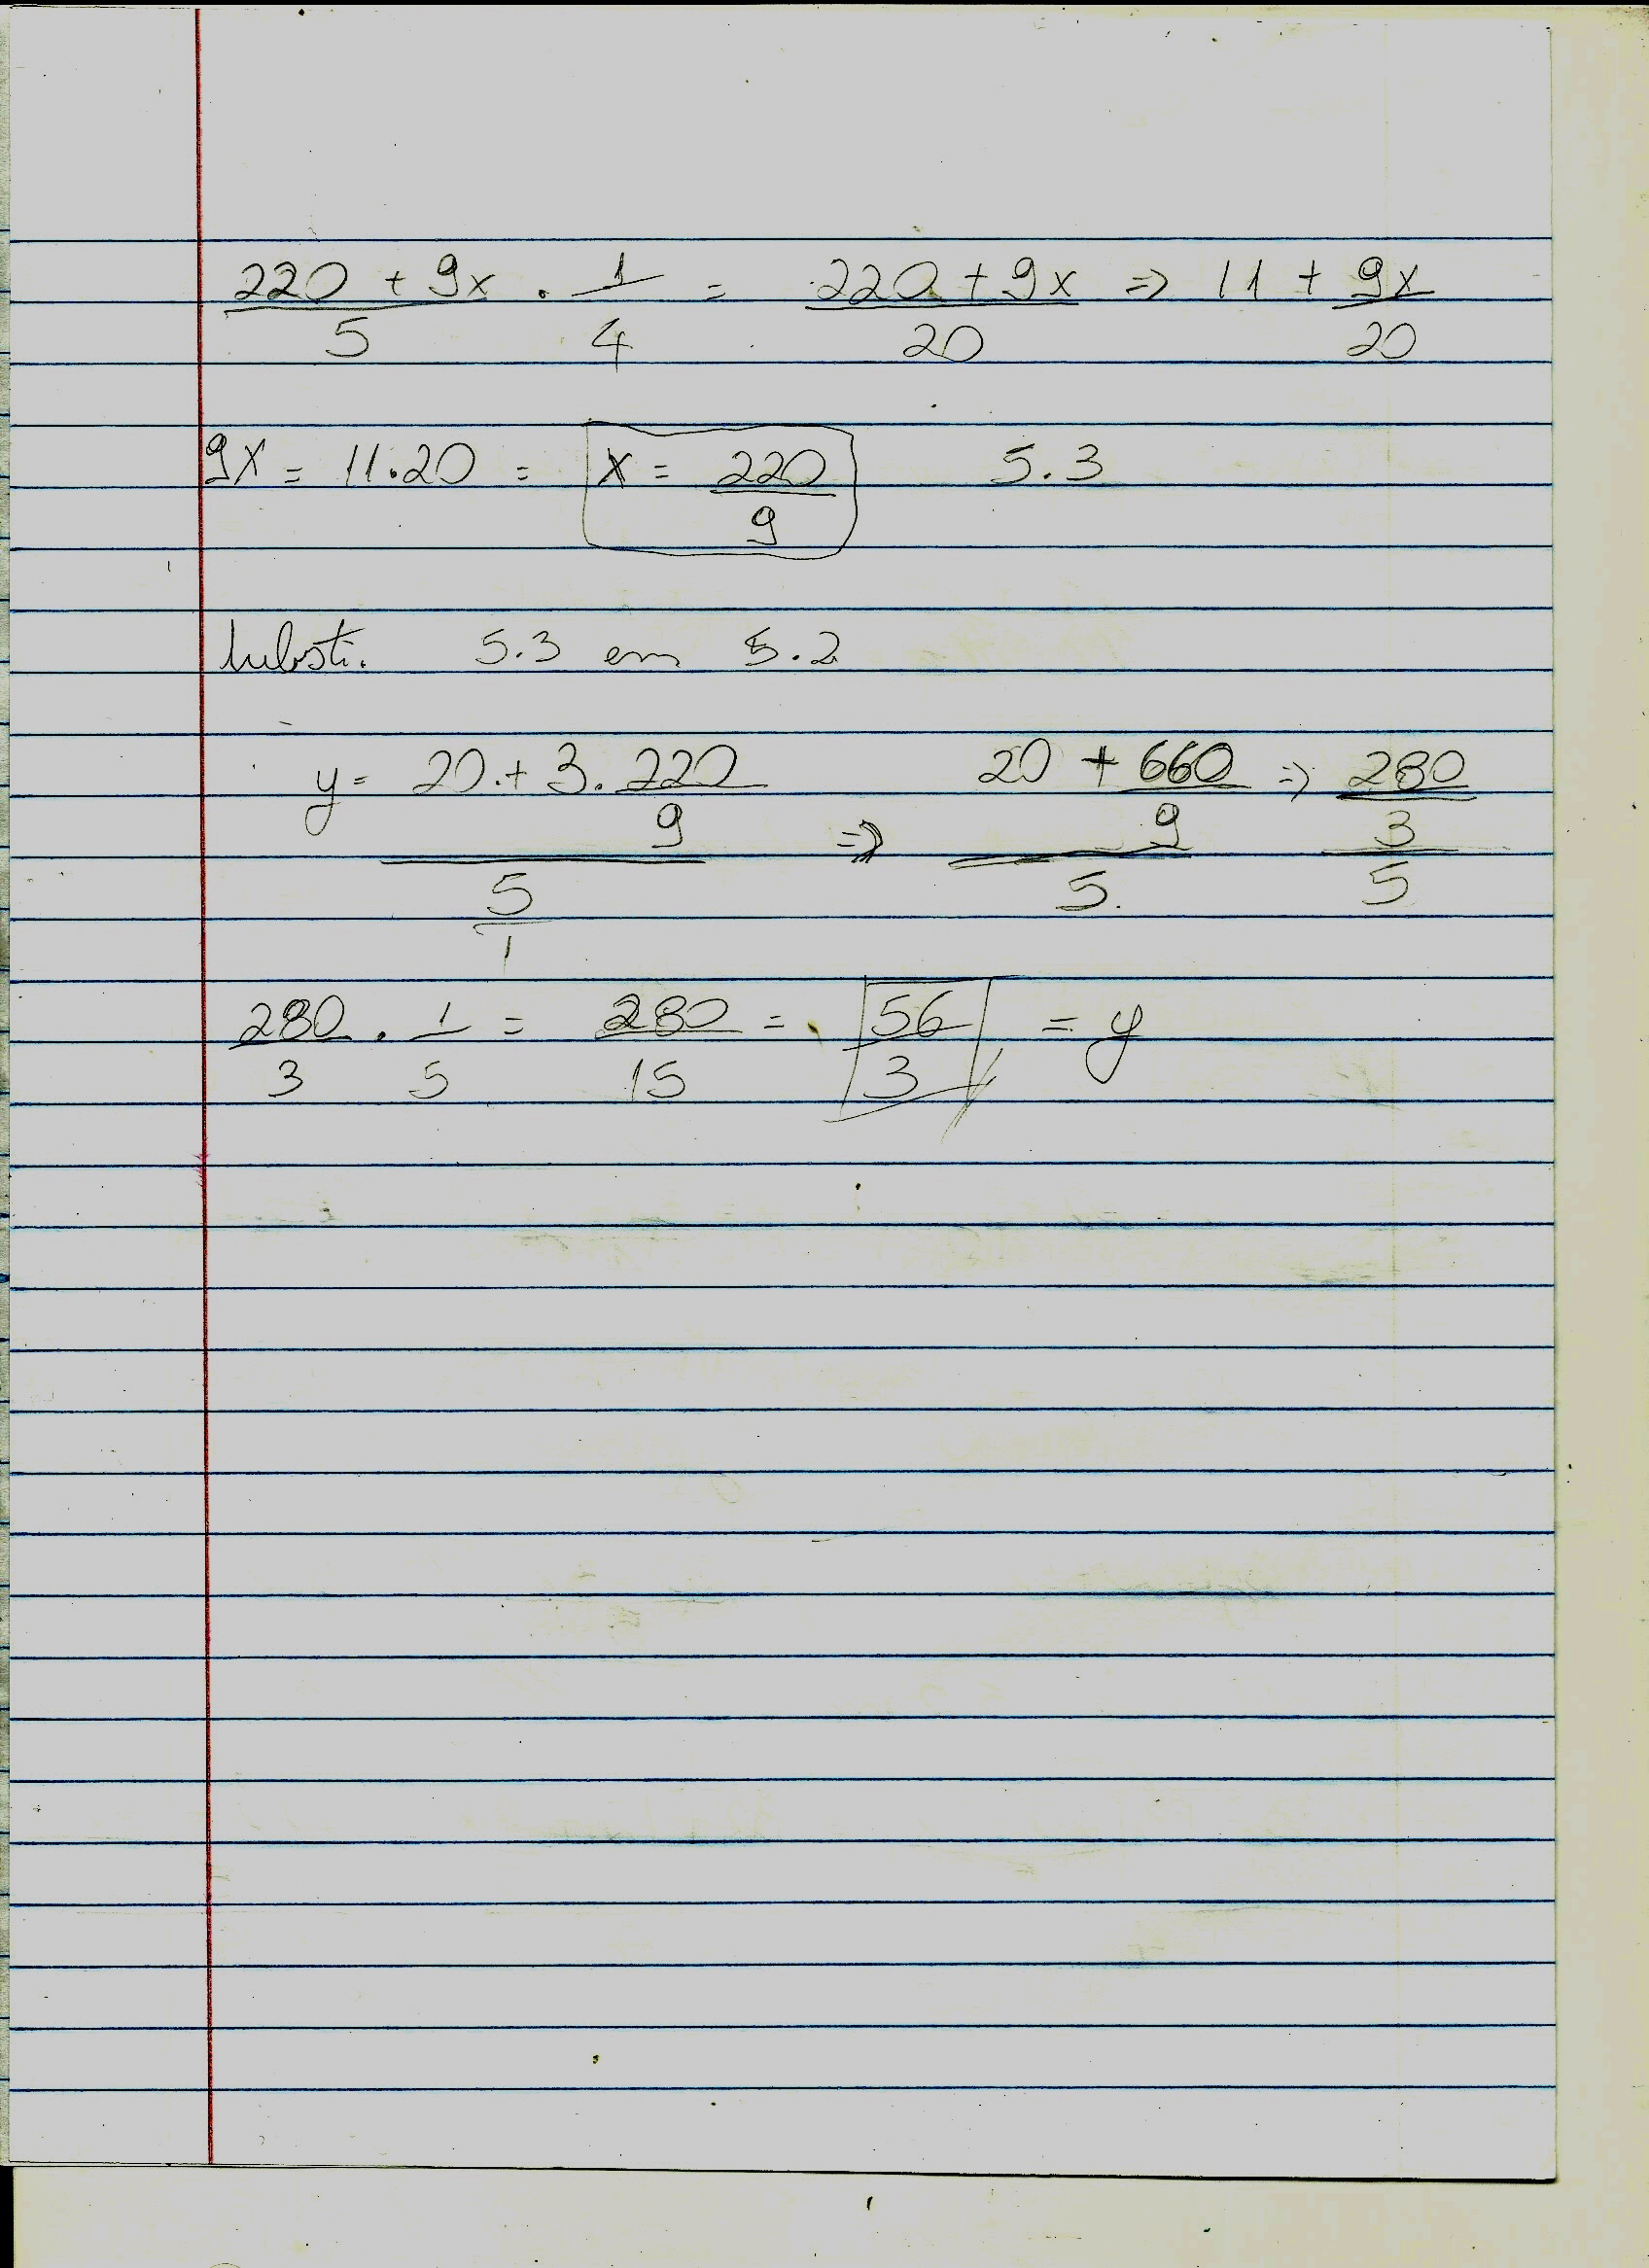 220 + 9x / 5 . 1/4 = 220 + 9x / 20 => 11 + 9x/20
9x = 11.20 = x = 220/9 5.3
Substi. 5.3 em 5.2
y = 20 + 3.220/9 / 5/1 => 20 + 660/9 / 5 => 280/3 / 5
280/3 . 1/5 = 280/15 = 56/3 = y